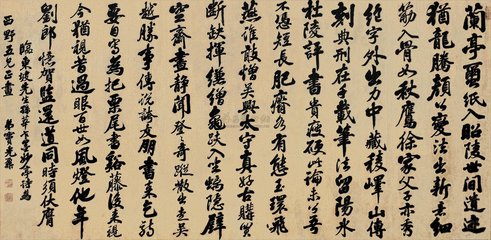 蘭亭繭紙入昭陵世間遺迹
猶龍騰顏公變法出新意細
筋入骨如秋鷹徐家父子亦秀
絕字外出力中藏稜嶧山傳
刻典刑在千載筆法留陽冰
杜陵評書貴瘦硬此論未公吾
不憑短長肥瘠各有態玉環飛
燕誰敢憎吳興太守真好古購買
斷缺揮縑繒龜趺入坐螭隱壁
空齋晝靜聞登登奇蹤散出走吳
越勝事傳說誇友朋書來乞詩
要自寫為把栗尾書谿藤後來視
今猶視昔過眼百世如風燈他年
劉郎憶賀監還道同時須服膺
臨東坡先生孫莘老求墨妙亭詩為
西野五兄正